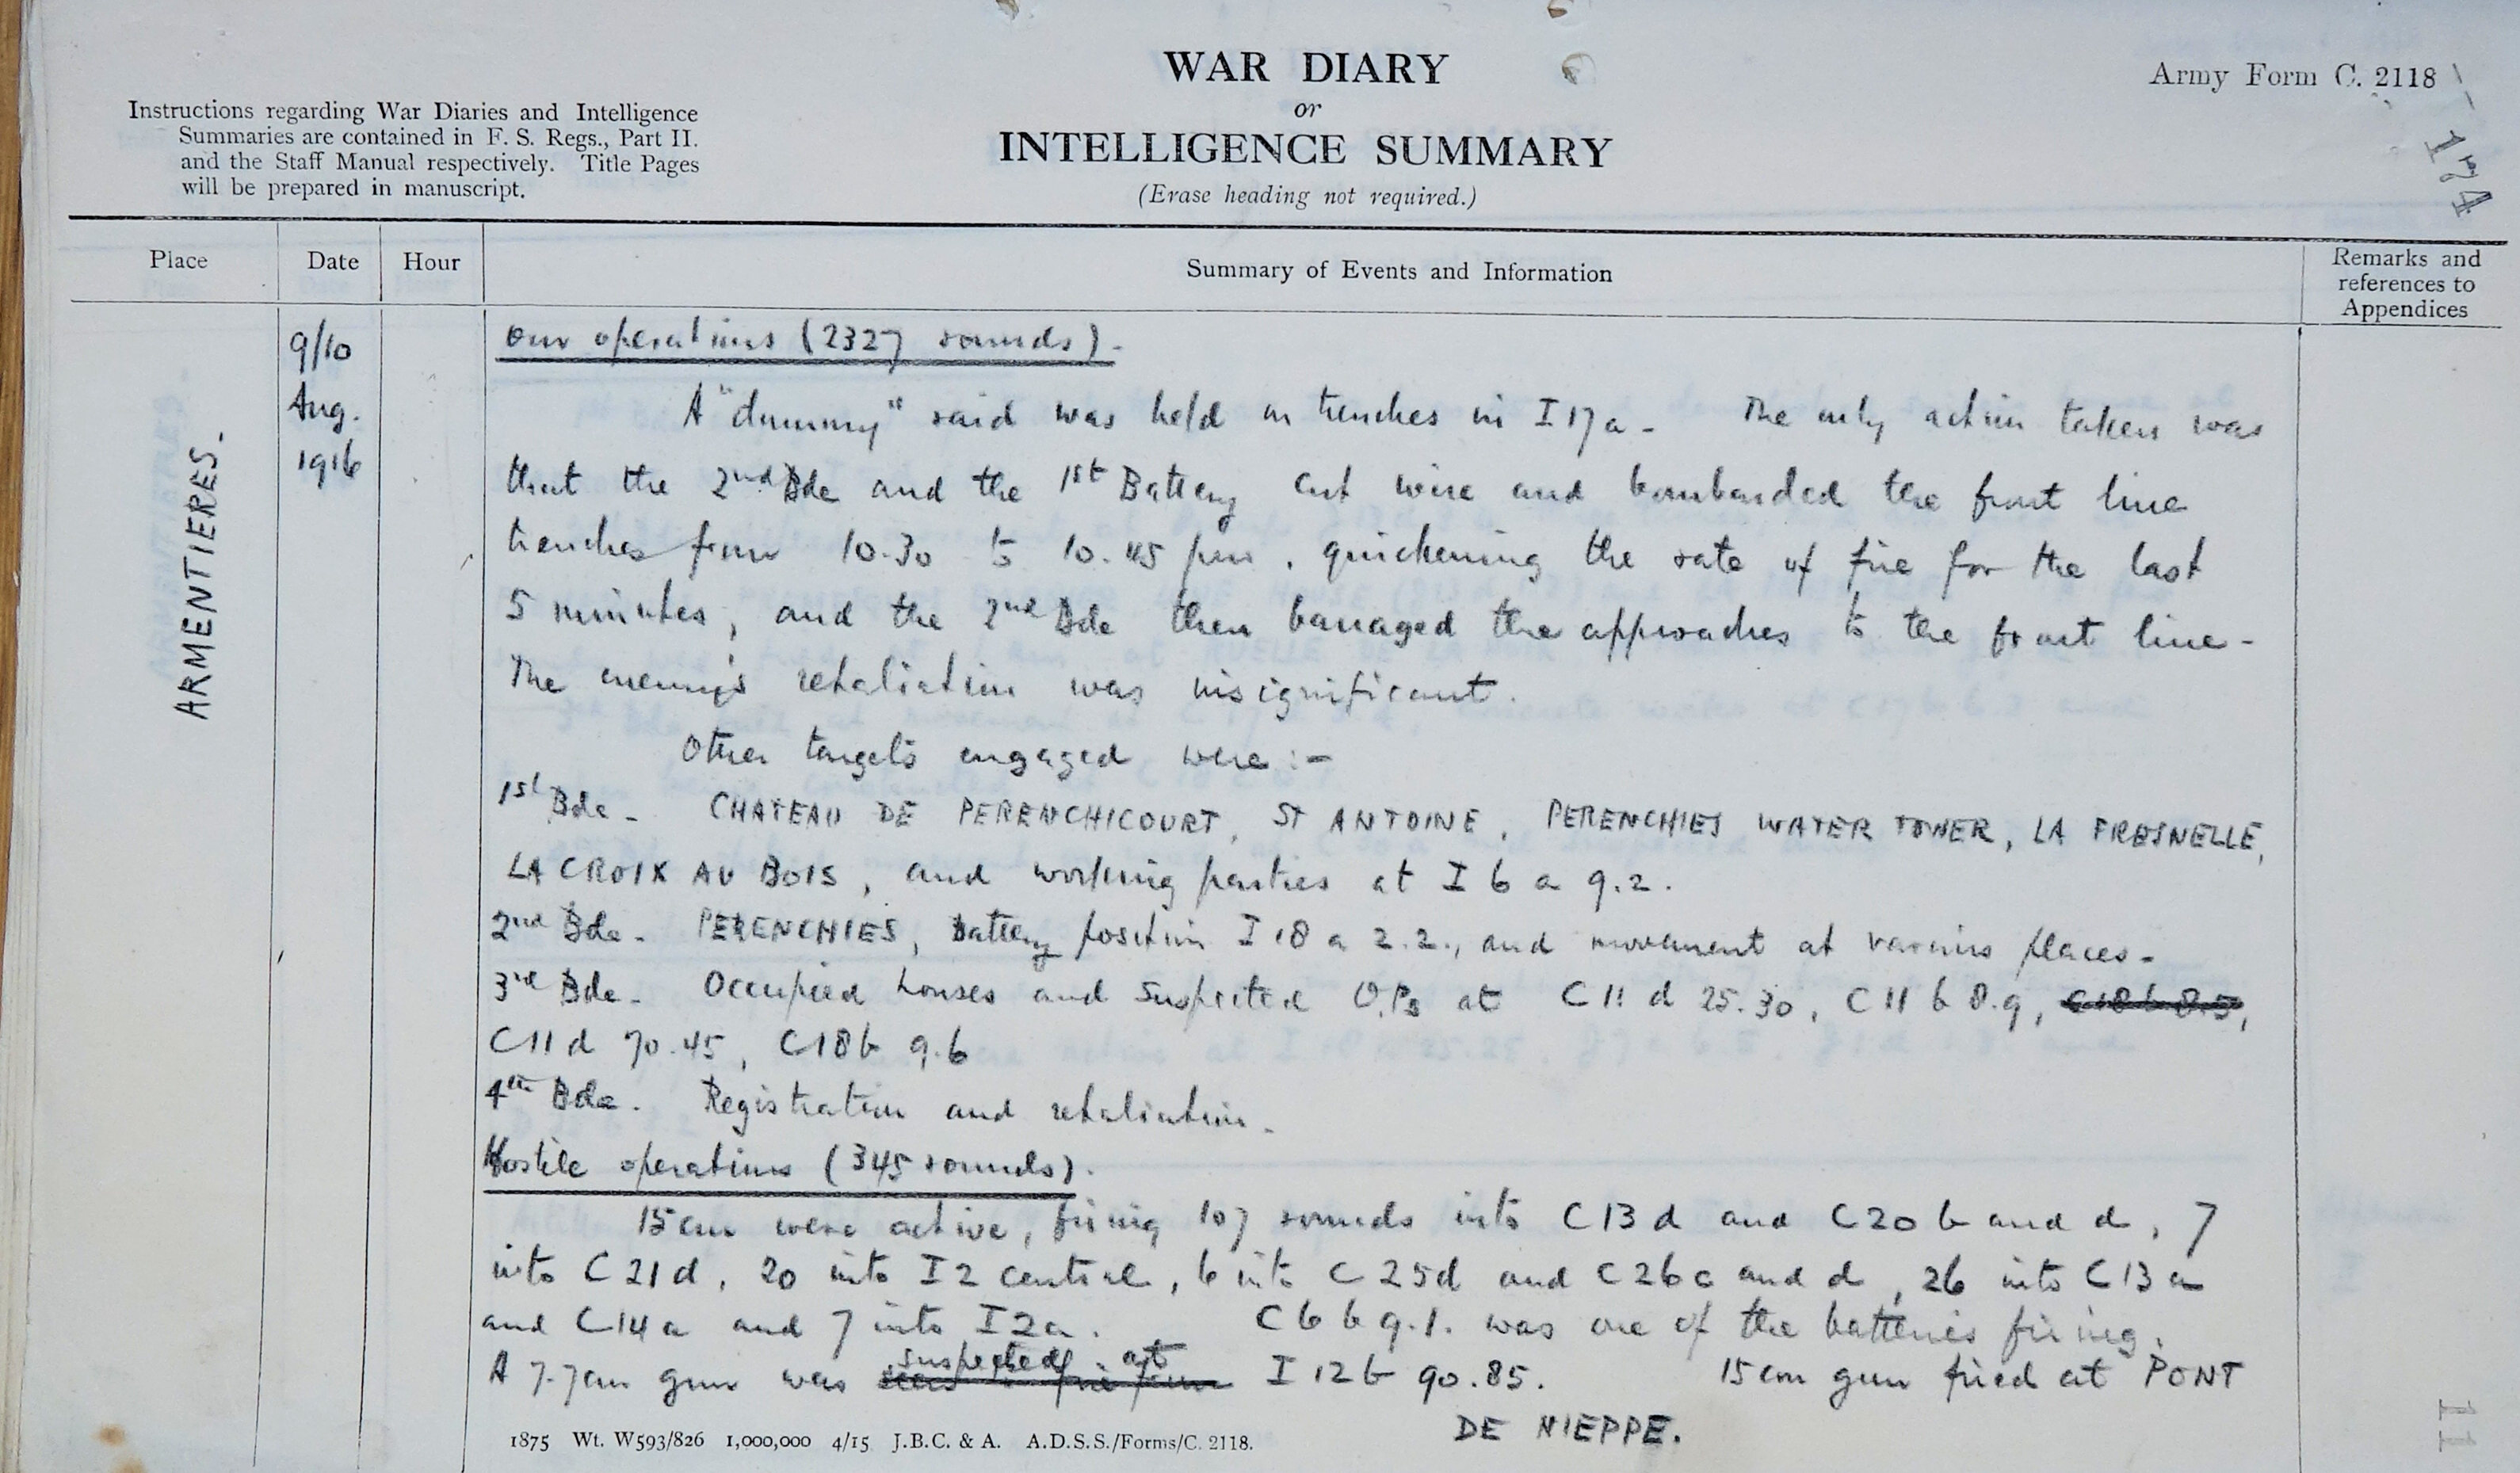 WAR DIARY
or
INTELLIGENCE SUMMARY
(Erase heading not required.)
Army Form C. 2118
174
Instructions regarding War Diaries and Intelligence
Summaries are contained in F. S. Regs., Part II.
and the Staff Manual respectively. Title Pages
will be prepared in manuscript.
Place Date Hour Summary of Events and Information Remarks and references to Appendices
ARMENTIERES.
9/10
Aug.
1916
Our operations (2327 rounds).
A "dummy" raid was held on trenches in I 17 a. The only action taken was
that the 2nd Bde and the 1st Battery cut wire and bombarded the front line
trenches from 10.30 to 10.45 pm, quickening the rate of fire for the last
5 minutes, and the 2nd Bde then barraged the approaches to the front line.
The enemy's retaliation was insignificant.
Other targets engaged were:-
1st Bde. CHATEAU DE PERENCHICOURT, ST ANTOINE, PERENCHIES WATER TOWER, LA FRESNELLE,
LA CROIX AU BOIS, and working parties at I 6 a 9.2.
2nd Bde. PERENCHIES, Battery position I 18 a 2.2., and movement at various places.
3rd Bde. Occupied houses and suspected O.Ps at C 11 d 25.30, C 11 b 8.9, C 18 b 8.5,
C 11 d 70.45, C 18 b 9.6
4th Bde. Registration and retaliation.
Hostile operations (345 rounds).
15 cm were active, firing 107 rounds into C 13 d and C 20 b and d, 7
into C 21 d, 20 into I 2 central, 6 into C 25 d and C 26 c and d, 26 into C 13 a
and C 14 a and 7 into I 2 a. C 6 b 9.1. was one of the batteries firing.
A 7.7 cm gun was suspected at I 12 b 90.85. 15 cm gun fired at PONT
DE NIEPPE.
1875 Wt. W593/826 1,000,000 4/15 J.B.C. & A. A.D.S.S./Forms/C. 2118.
11